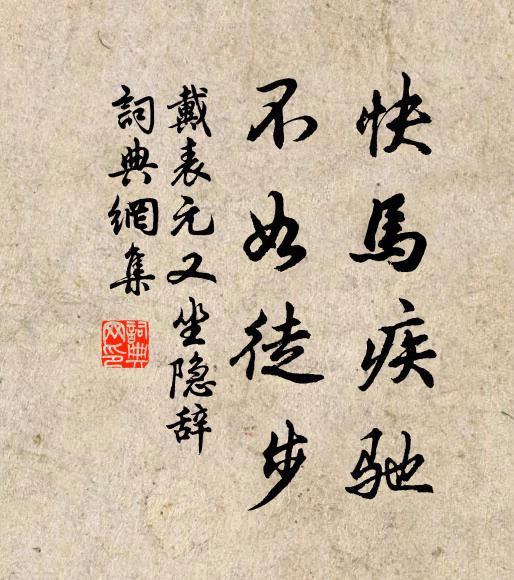 快馬疾驰
不如徒步
戴表元又坐隐辞
詞典網集
詞典
网印